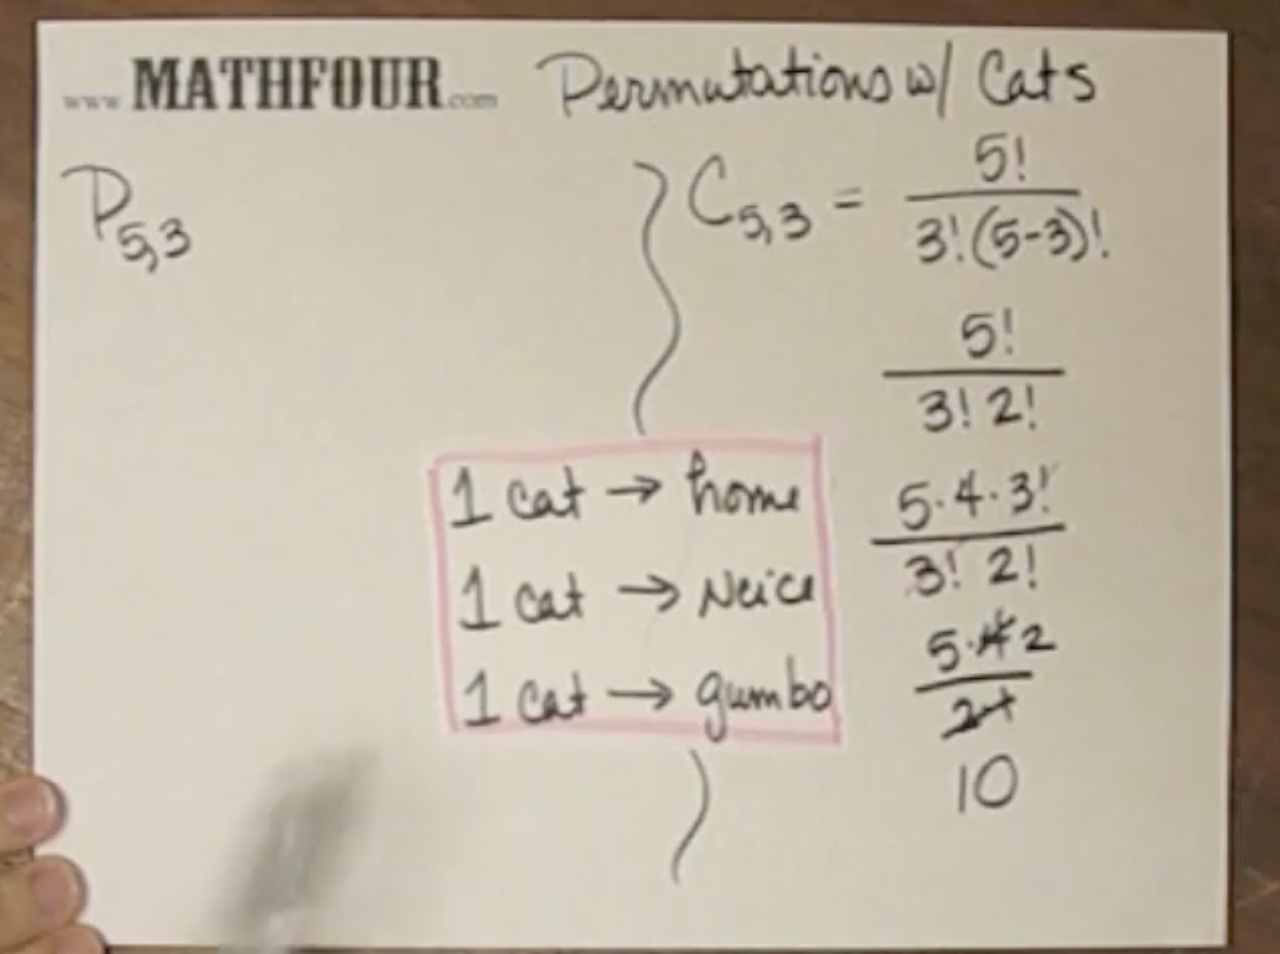 www.MATHFOUR.com Permutations w/ Cats
P5,3
C5,3 = 5!
3!(5-3)!
5!
3! 2!
5·4·3!
3! 2!
5·4 2
2·1
10
1 cat → home
1 cat → Neice
1 cat → gumbo